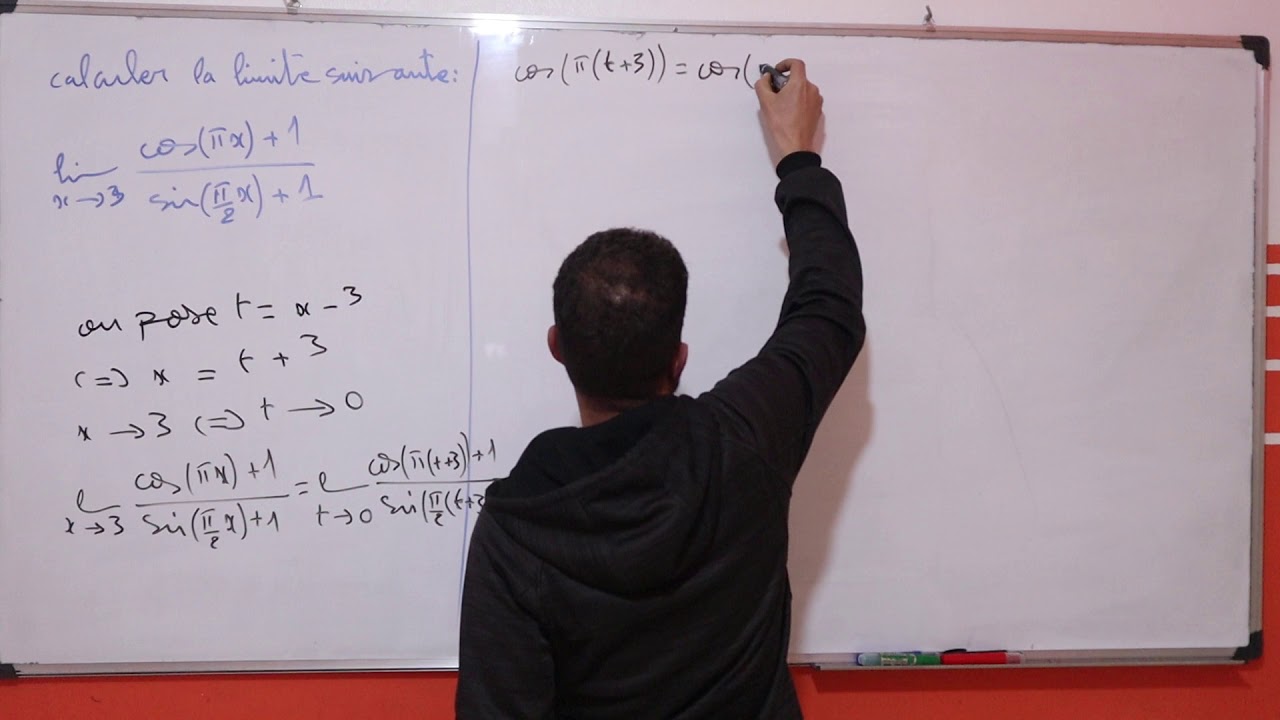 calculer la limite suivante:
lim x→3 (cos(πx)+1)/(sin(π/2 x)+1)
on pose t = x - 3
(=) x = t + 3
x → 3 (=) t → 0
l x→3 (cos(πx)+1)/(sin(π/2 x)+1) = l t→0 (cos(π(t+3)+1)/(sin(π/2(t+3
cos(π(t+3)) = cos(